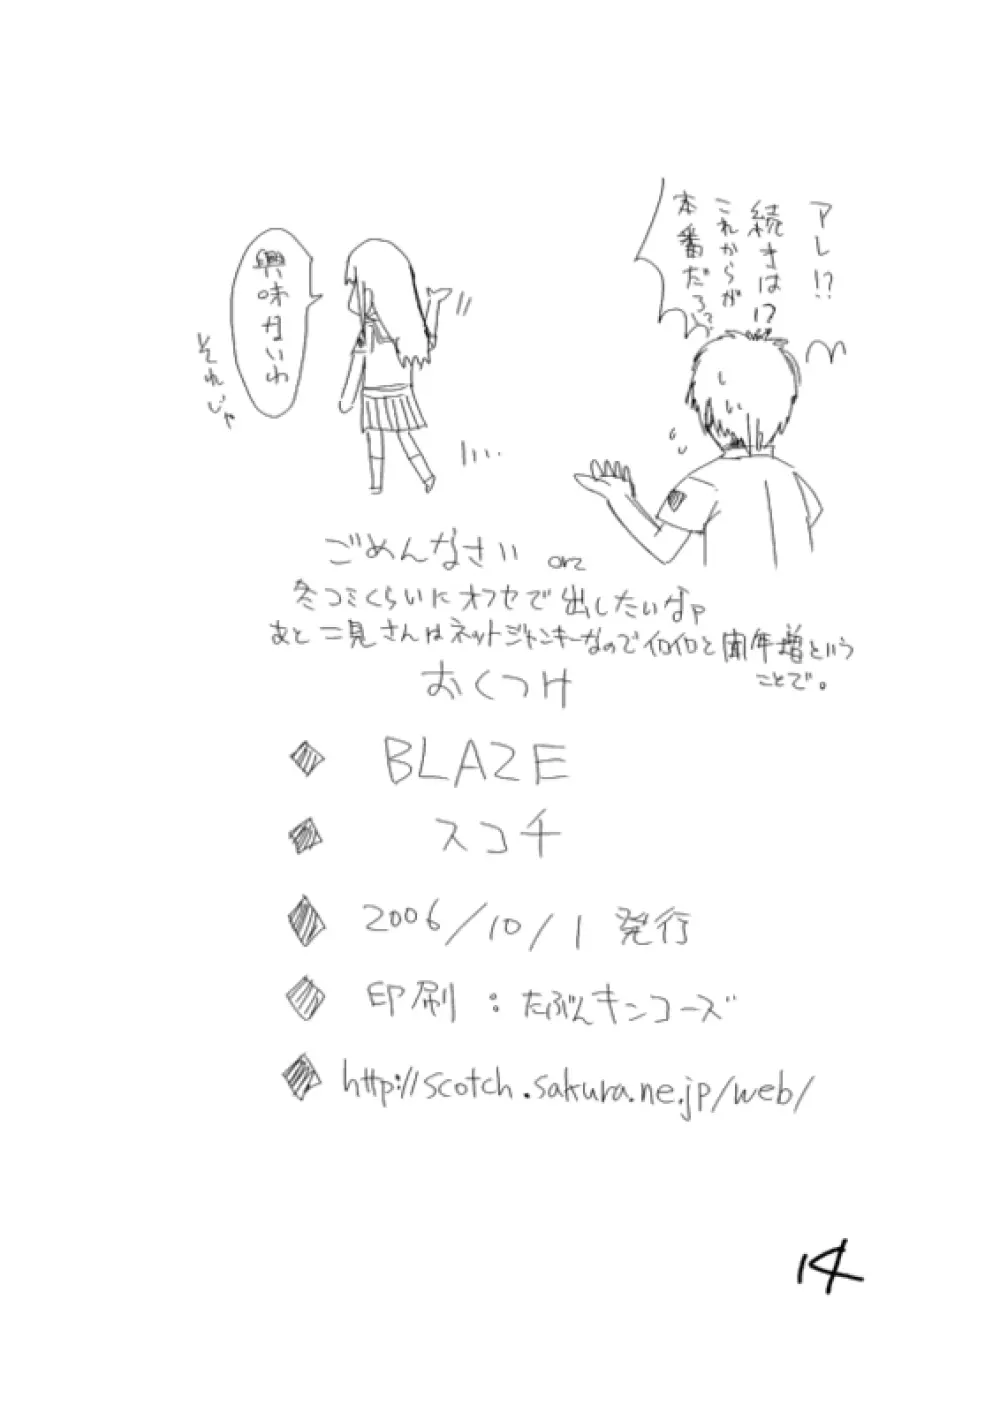 アレ!?
続きは!?
これからが
本番だろ!?
興味ないわ
それじゃ
ごめんなさい orz
冬コミくらいにオフセで出したいなァ
あと二見さんはネットジャンキーなのでイロイロと聞年増という
ことで。
おくつけ
BLAZE
スコチ
2006/10/1 発行
印刷 : たぶんキンコーズ
http://scotch.sakura.ne.jp/web/
14